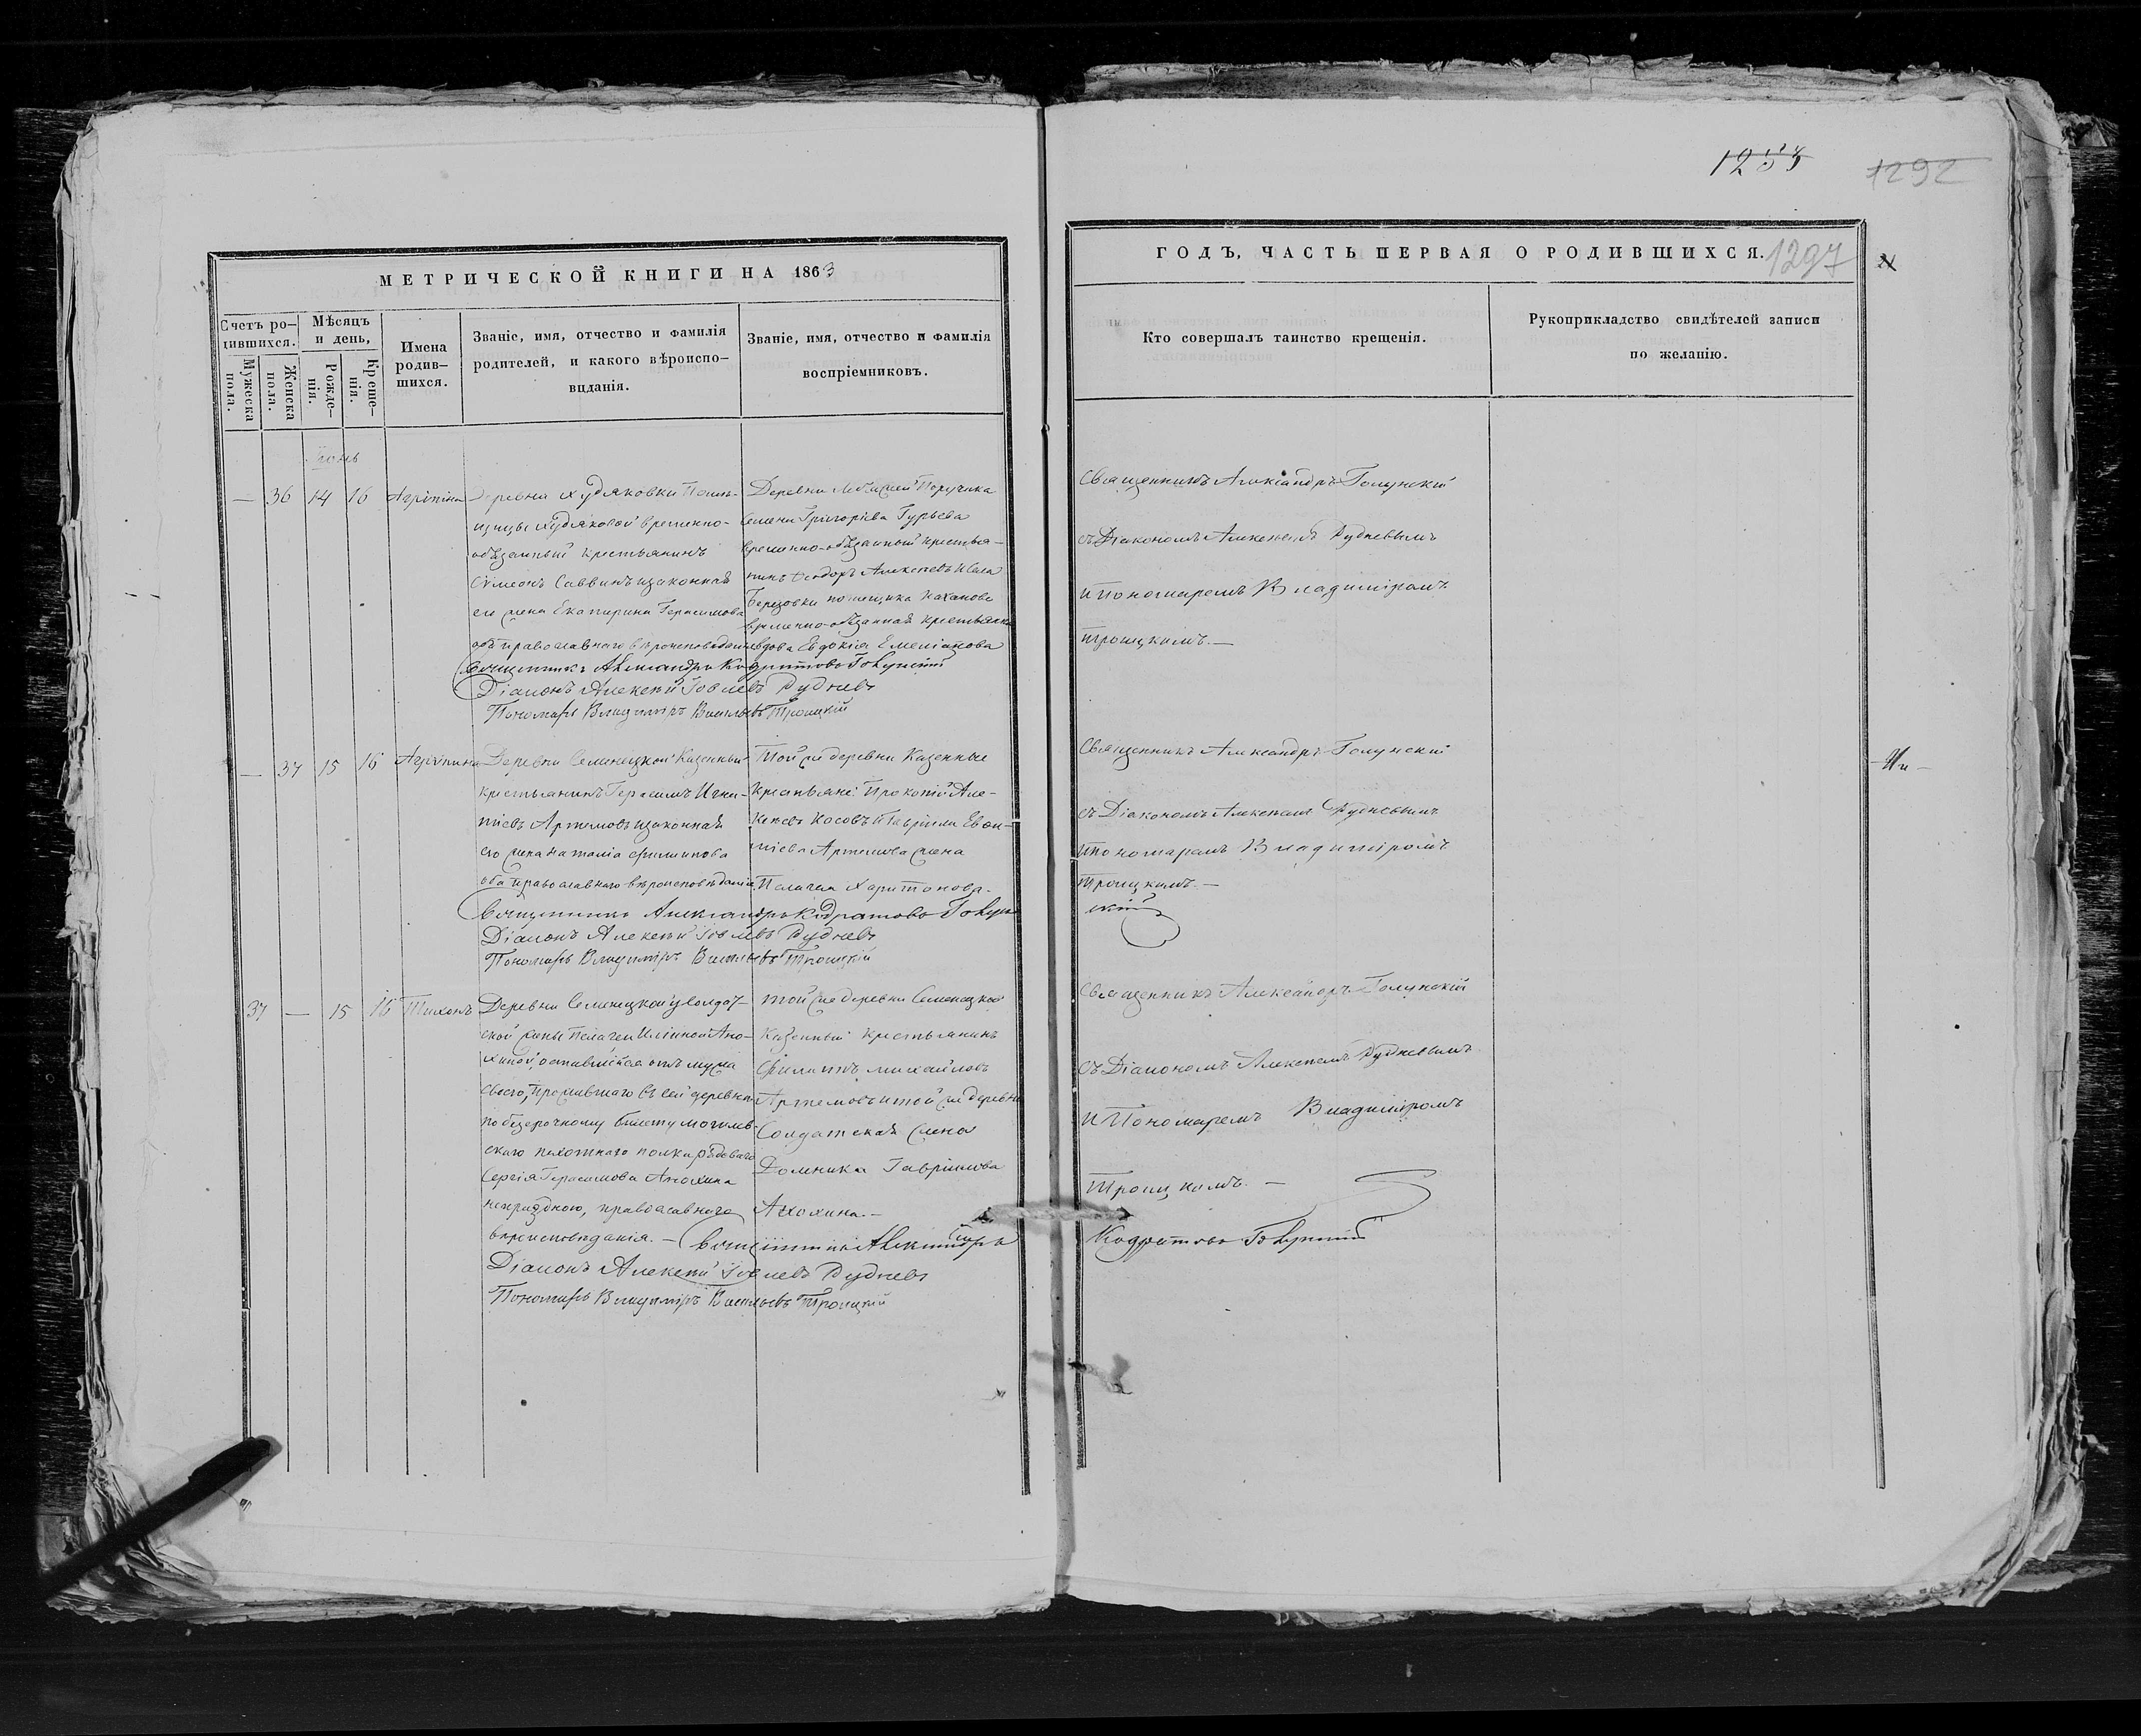 1292
1297
МЕТРИЧЕСКОЙ КНИГИ НА 1863
ГОДЪ, ЧАСТЬ ПЕРВАЯ О РОДИВШИХСЯ.
Счетъ ро-
дившихся.
Мужеска пола.
Женска пола.
Мѣсяцъ
и день,
Рожде-
нія.
Креще-
нія.
Имена
родив-
шихся.
Званіе, имя, отчество и фамилія
родителей, и какого вѣроиспо-
вѣданія.
Званіе, имя, отчество и фамилія
воспріемниковъ.
Кто совершалъ таинство крещенія.
Рукоприкладство свидѣтелей записи
по желанію.
Іюнь
— 36 14 16 Агрипина
Деревни Худяковки Помѣ-
щицы Худяковой временно-
обязанный крестьянинъ
Сѵмеонъ Саввинъ и законная
его жена Екатерина Герасимова
оба православнаго вѣроисповѣданія
Деревни Поручика
Семена Григоріева Гурьева
временно-обязанный крестья-
нинъ Ѳеодоръ Алексѣевъ и села
Березовки помещика Каханова
временно-обязанная крестьянка
вдова Евдокія Емеліанова
Священникъ Александръ Голунскій
съ Діакономъ Алексѣемъ Рудневымъ
и Пономаремъ Владиміромъ
Троицкимъ. —
Священникъ Александръ Кодратовъ Голунскій
Діаконъ Алексѣй Іовлевъ Рудневъ
Пономарь Владиміръ Васильевъ Троицкій
— 37 15 16 Агрипина
Деревни Семенецкой Казенный
крестьянинъ Герасимъ Игна-
тіевъ Артемовъ и законная
его жена Наталія Филипова
оба православнаго вѣроисповѣданія
Той же деревни Казенные
Крестьяне: Прокопій Але-
ксѣевъ Косовъ и Гавріила Евѳи-
міева Артемова жена
Пелагея Харитонова.
Священникъ Александръ Голунскій
съ Діакономъ Алексѣемъ Рудневымъ
и пономаремъ Владиміромъ
Троицкимъ. —
Священникъ Александръ Кодратовъ Голун
скій
Діаконъ Алексѣй Іовлевъ Рудневъ
Пономарь Владиміръ Васильевъ Троицкій
37 — 15 16 Тихонъ
Деревни Семенецкой у солдат-
ской жены Пелагеи Иліиной Ано-
хиной, оставшійся отъ мужа
своего, прожившаго въ сей деревнѣ
по безсрочному билету могилев-
скаго пехотнаго полка рядоваго
Сергія Герасимова Анохина
непраздною, православнаго
вѣроисповѣданія. —
Той же деревни Семенецкой
Казенный крестьянинъ
Филиппъ Михайловъ
Артемовъ и той же деревни
Солдатская жена
Домника Гаврилова
Анохина. —
Священникъ Александръ Голунскій
съ Діакономъ Алексѣемъ Рудневымъ
и Пономаремъ Владиміромъ
Троицкимъ. —
Священникъ Александръ
Кодратовъ Голунскій
Діаконъ Алексѣй Іовлевъ Рудневъ
Пономарь Владиміръ Васильевъ Троицкій